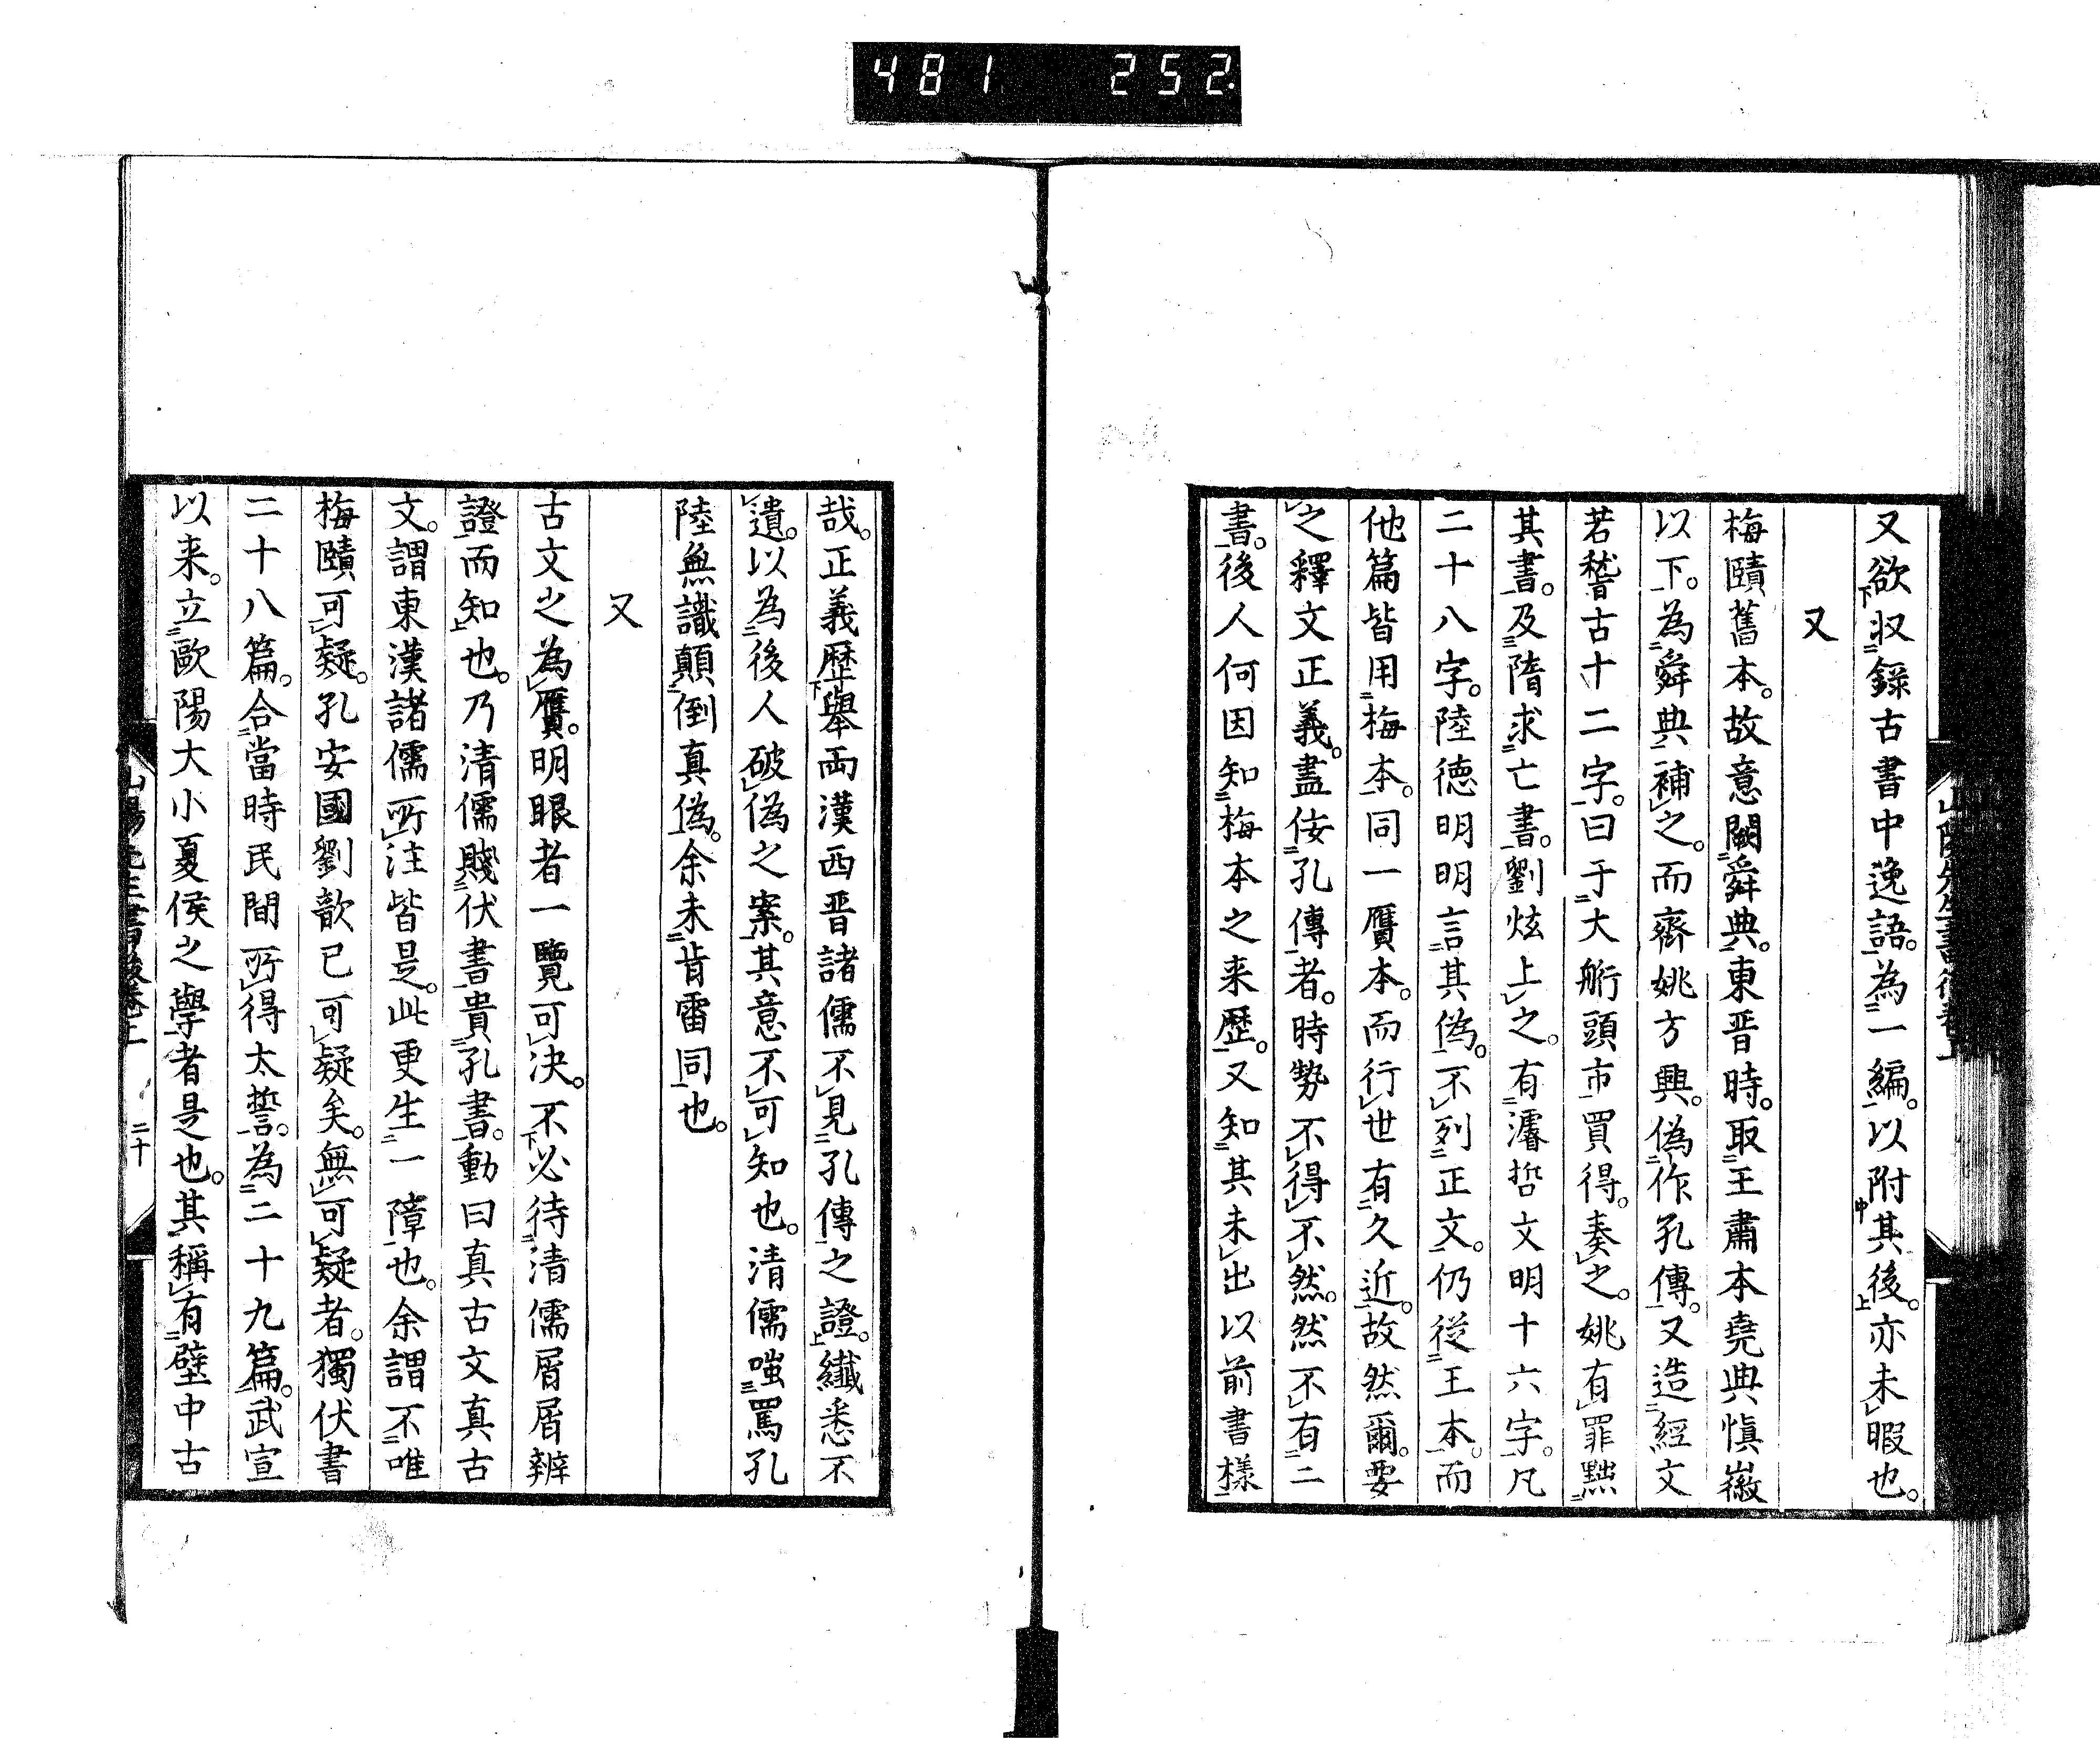 481 252
又欲収錄古書中逸語。為一編。以附其後。亦未暇也。
又
梅賾舊本。故意闕舜典。東晋時。取王肅本堯典愼徽
以下。為舜典補之。而齊姚方興。偽作孔傳。又造經文
若稽古十二字。曰于大舫頭市買得。奏之。姚有罪黜
其書。及隋求亡書。劉炫上之。有濬哲文明十六字。凡
二十八字。陸德明明言其偽。不列正文。仍從王本。而
他篇皆用梅本。同一贋本。而行世有久近。故然爾。要
之釋文正義。盡依孔傳者。時勢不得不然。然不有二
書。後人何因知梅本之来歷。又知其未出以前書樣
哉。正義歷舉両漢西晋諸儒不見孔傳之證。纎悉不
遺。以為後人破偽之案。其意不可知也。清儒嗤罵孔
陸無識顛倒真偽。余未肯雷同也。
又
古文之為贋。明眼者一覽可決。不必待清儒屑屑辨
證而知也。乃清儒賤伏書貴孔書。動曰真古文真古
文。謂東漢諸儒所注皆是。此更生一障也。余謂不唯
梅賾可疑。孔安國劉歆已可疑矣。無可疑者。獨伏書
二十八篇。合當時民間所得太誓。為二十九篇。武宣
以来。立歐陽大小夏侯之學者是也。其稱有壁中古
山陽先生書後卷上 二十